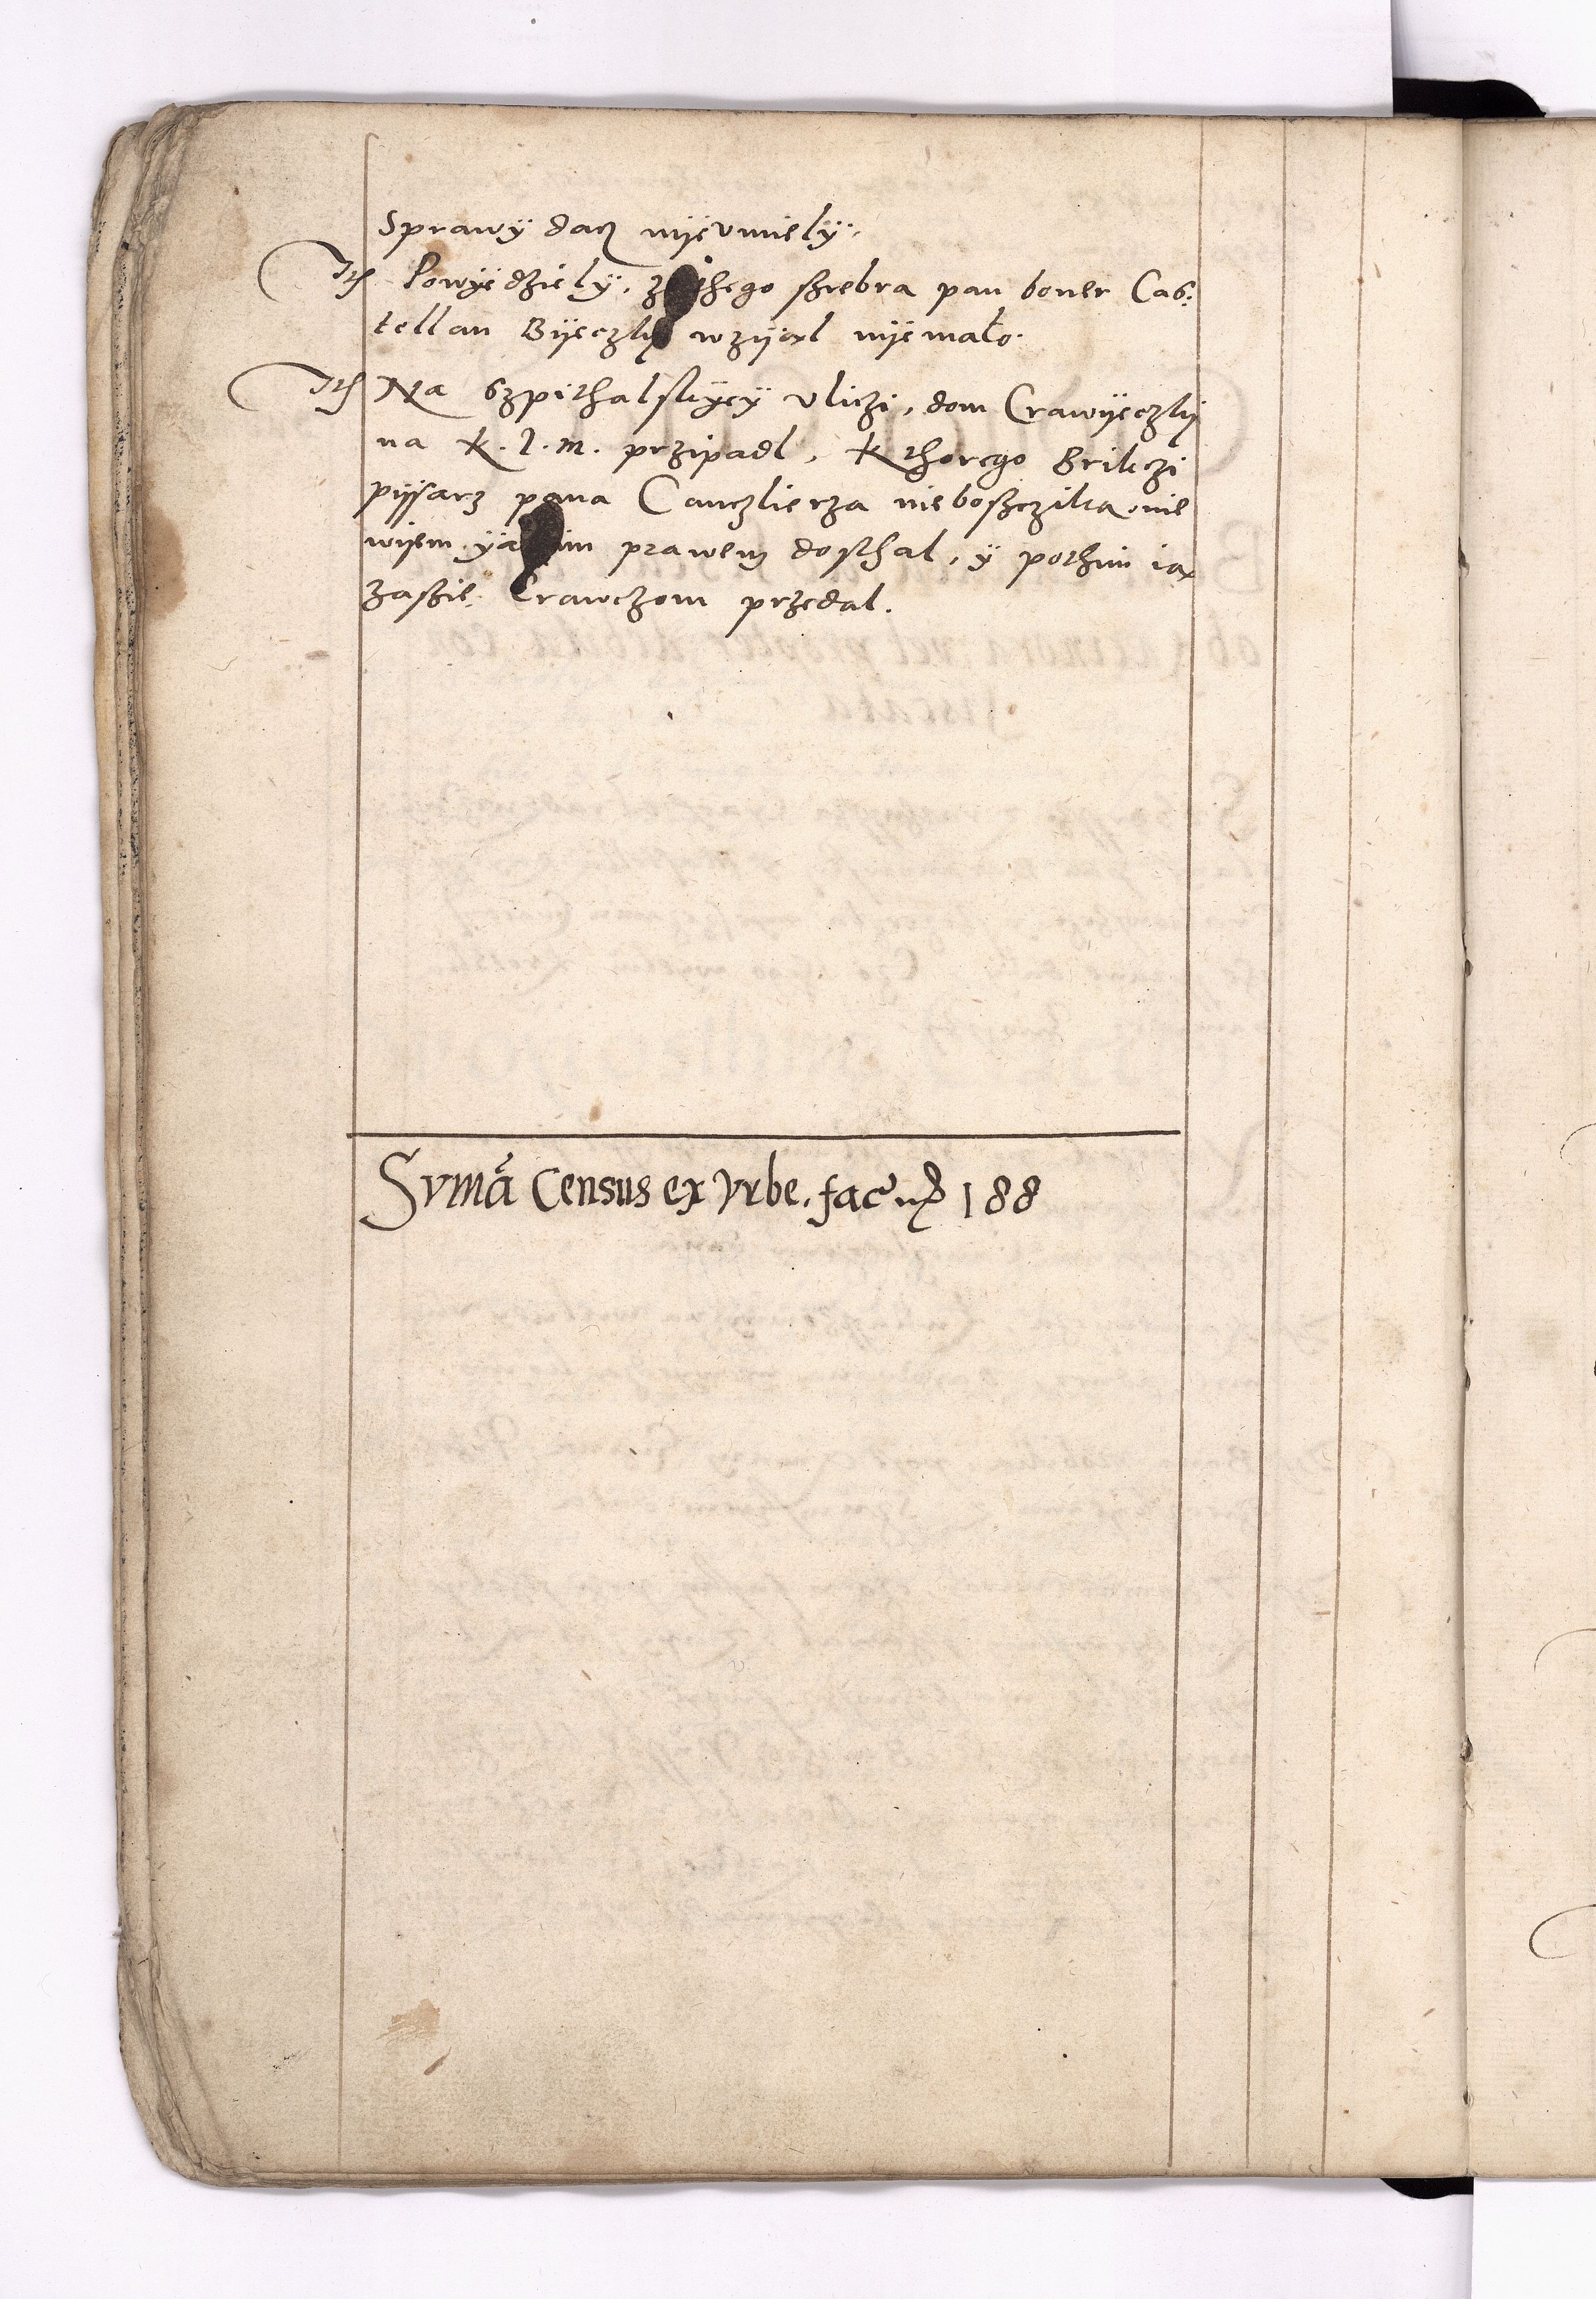 Sprawÿ dacz nÿevmielÿ.
Itē Powÿedzielÿ, z thego szrebra pan boner Cas:
tellan Bÿeczkÿ wzÿąl nÿemało.
Itē Na Szpithalskÿeÿ vliczi, dom Crawÿeczkÿ
na K. I. M. przipadl, kthorego Brikczi
pÿssarz pana Canczlierza nieboszczika nie
wÿem ÿakim prawem dosthal, ÿ pothim iąx
zaszie Crawczom przedal.
Svmā Census ex vrbe, fac 188